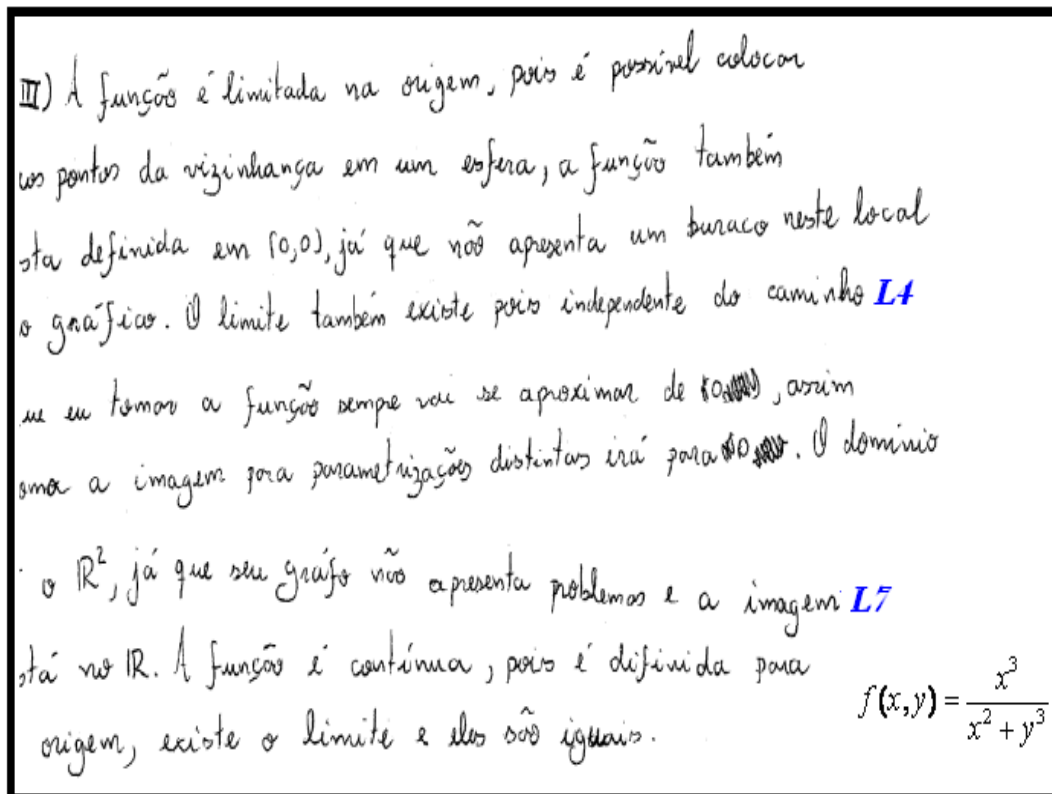 III) A função é limitada na origem, pois é possível colocar
os pontos da vizinhança em um esfera, a função também
sta definida em (0,0), já que não apresenta um buraco neste local
o gráfico. O limite também existe pois independente do caminho L4
ue eu tomar a função sempre vai se aproximar de , assim
omo a imagem para parametrizações distintas irá para . O domínio
o IR², já que seu gráfo não apresenta problemas e a imagem L7
stá no IR. A função é contínua, pois é difinida para
origem, existe o limite e eles são iguais.
f(x,y) = x³ / (x² + y³)